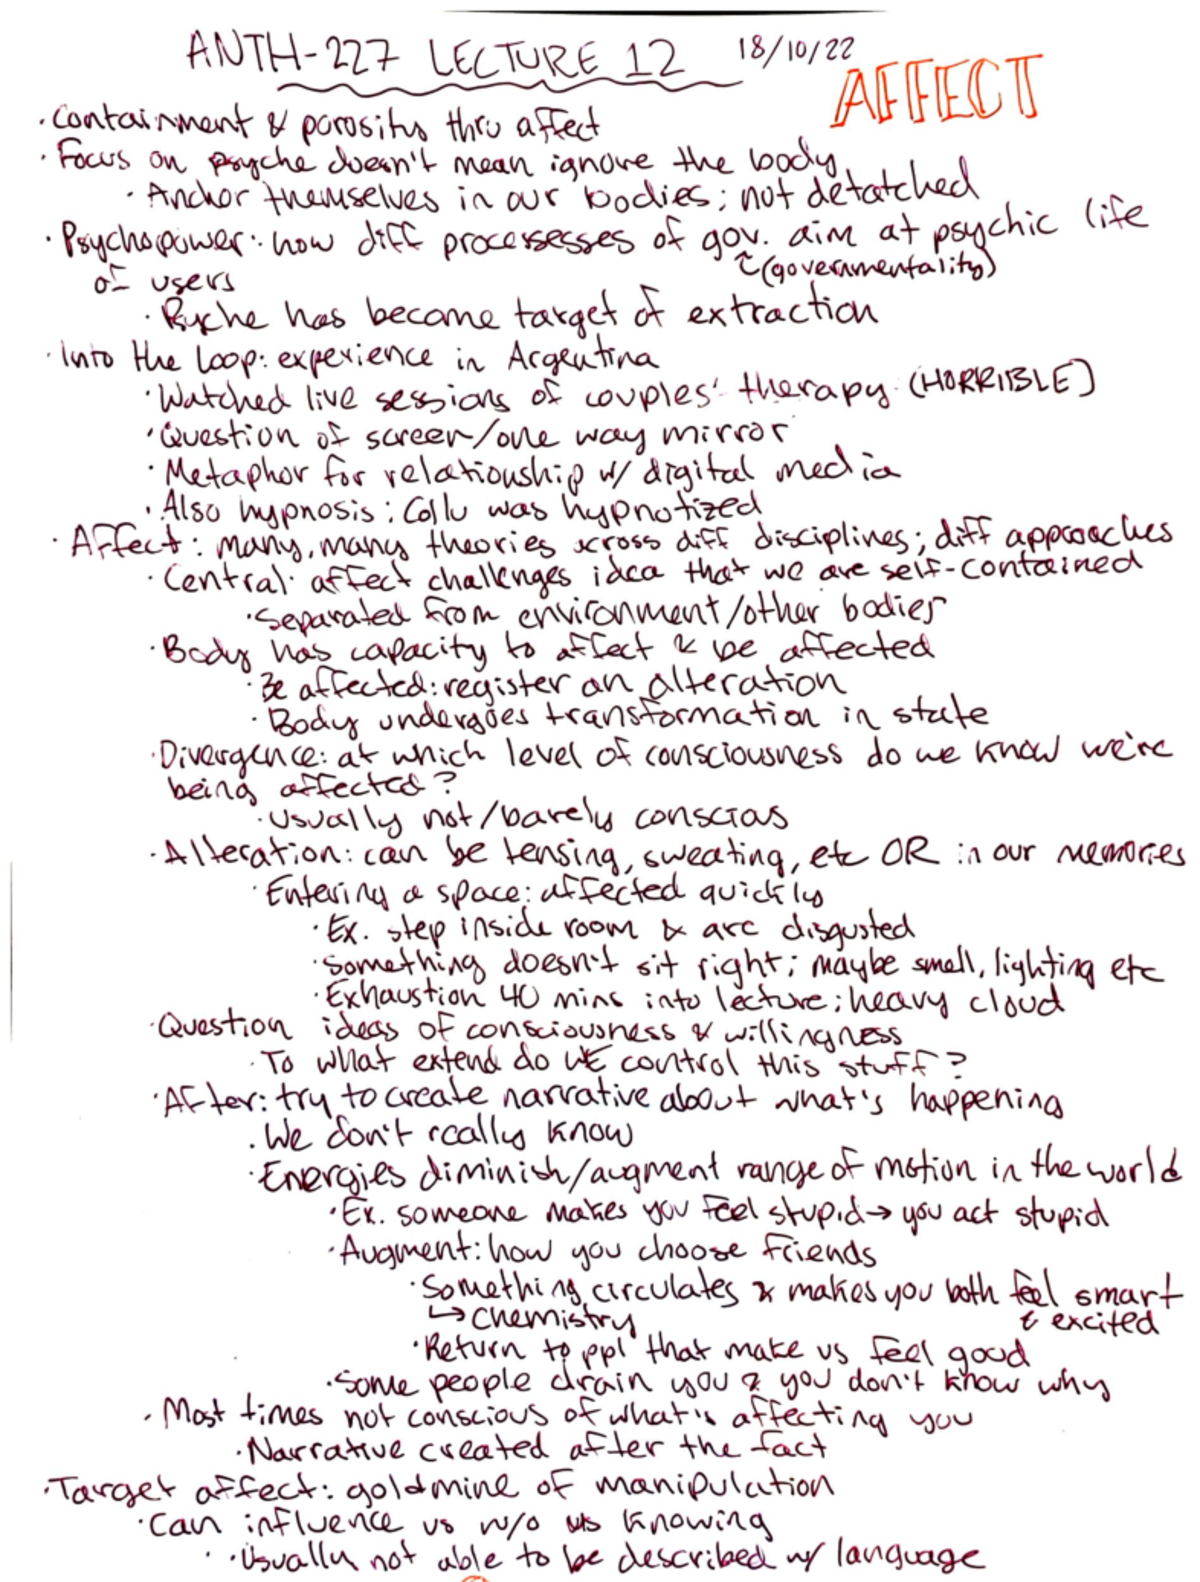 ANTH-227 LECTURE 12 18/10/22
AFFECT
· Containment & porosity thru affect
· Focus on psyche doesn't mean ignore the body
· Anchor themselves in our bodies; not detatched
· Psychopower: how diff processesses of gov. aim at psychic life
(governmentality)
of users
· Psyche has become target of extraction
· Into the loop: experience in Argentina
· Watched live sessions of couples' therapy (HORRIBLE)
· Question of screen/one way mirror
· Metaphor for relationship w/ digital media
· Also hypnosis; Collu was hypnotized
· Affect: many, many theories across diff disciplines; diff approaches
· Central: affect challenges idea that we are self-contained
· Separated from environment/other bodies
· Body has capacity to affect & be affected
· Be affected: register an alteration
· Body undergoes transformation in state
· Divergence: at which level of consciousness do we know we're
being affected?
· Usually not/barely conscious
· Alteration: can be tensing, sweating, etc OR in our memories
· Entering a space: affected quickly
· Ex. step inside room & are disgusted
· Something doesn't sit right; maybe smell, lighting etc
· Exhaustion 40 mins into lecture; heavy cloud
· Question ideas of consciousness & willingness
· To what extend do WE control this stuff?
· After: try to create narrative about what's happening
· We don't really know
· Energies diminish/augment range of motion in the world
· Ex. someone makes you feel stupid → you act stupid
· Augment: how you choose friends
· Something circulates & makes you both feel smart
& excited
↳ Chemistry
· Return to ppl that make us feel good
· Some people drain you & you don't know why
· Most times not conscious of what's affecting you
· Narrative created after the fact
· Target affect: goldmine of manipulation
· Can influence us w/o us knowing
· Usually not able to be described w/ language